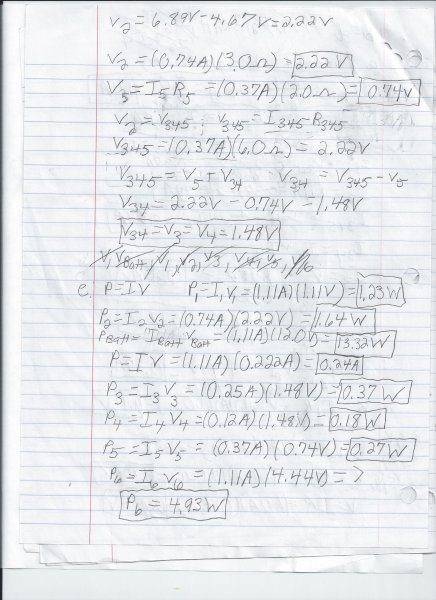 V₂ = 6.89V - 4.67V = 2.22V
V₂ = (0.74A)(3.0Ω) = 2.22 V
V₅ = I₅ R₅ = (0.37A)(2.0Ω) = 0.74V
V₂ = V₃₄₅ ; V₃₄₅ = I₃₄₅ R₃₄₅
V₃₄₅ = (0.37A)(6.0Ω) = 2.22V
V₃₄₅ = V₅ + V₃₄ V₃₄ = V₃₄₅ - V₅
V₃₄ = 2.22V - 0.74V = 1.48V
V₃₄ = V₃ = V₄ = 1.48V
e. P = IV P₁ = I₁V₁ = (1.11A)(1.11V) = 1.23W
P₂ = I₂V₂ = (0.74A)(2.22V) = 1.64W
P_Batt = I_Batt V_Batt = (1.11A)(12.0V) = 13.32W
P = IV = (1.11A)(0.222A) = 0.24A
P₃ = I₃V₃ = (0.25A)(1.48V) = 0.37 W
P₄ = I₄V₄ = (0.12A)(1.48V) = 0.18W
P₅ = I₅V₅ = (0.37A)(0.74V) = 0.27W
P₆ = I₆V₆ = (1.11A)(4.44V) = >
P₆ = 4.93W